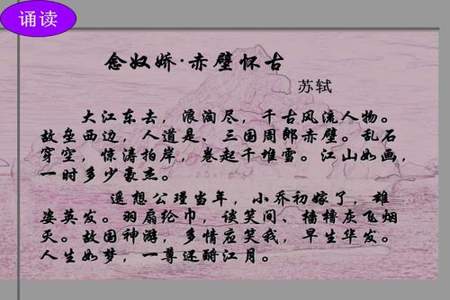 诵读
念奴娇·赤壁怀古
苏轼
大江东去，浪淘尽，千古风流人物。
故垒西边，人道是、三国周郎赤壁。乱石
穿空，惊涛拍岸，卷起千堆雪。江山如画，
一时多少豪杰。
遥想公瑾当年，小乔初嫁了，雄
姿英发。羽扇纶巾，谈笑间、樯橹灰飞烟
灭。故国神游，多情应笑我，早生华发。
人生如梦，一尊还酹江月。